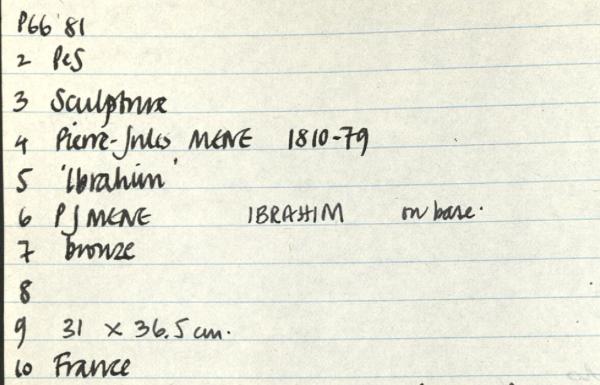 P66 '81
2 PeS
3 Sculpture
4 Pierre-Jules MENE 1810-79
5 'Ibrahim'
6 PJ MENE IBRAHIM on base.
7 bronze
8
9 31 x 36.5 cm.
10 France